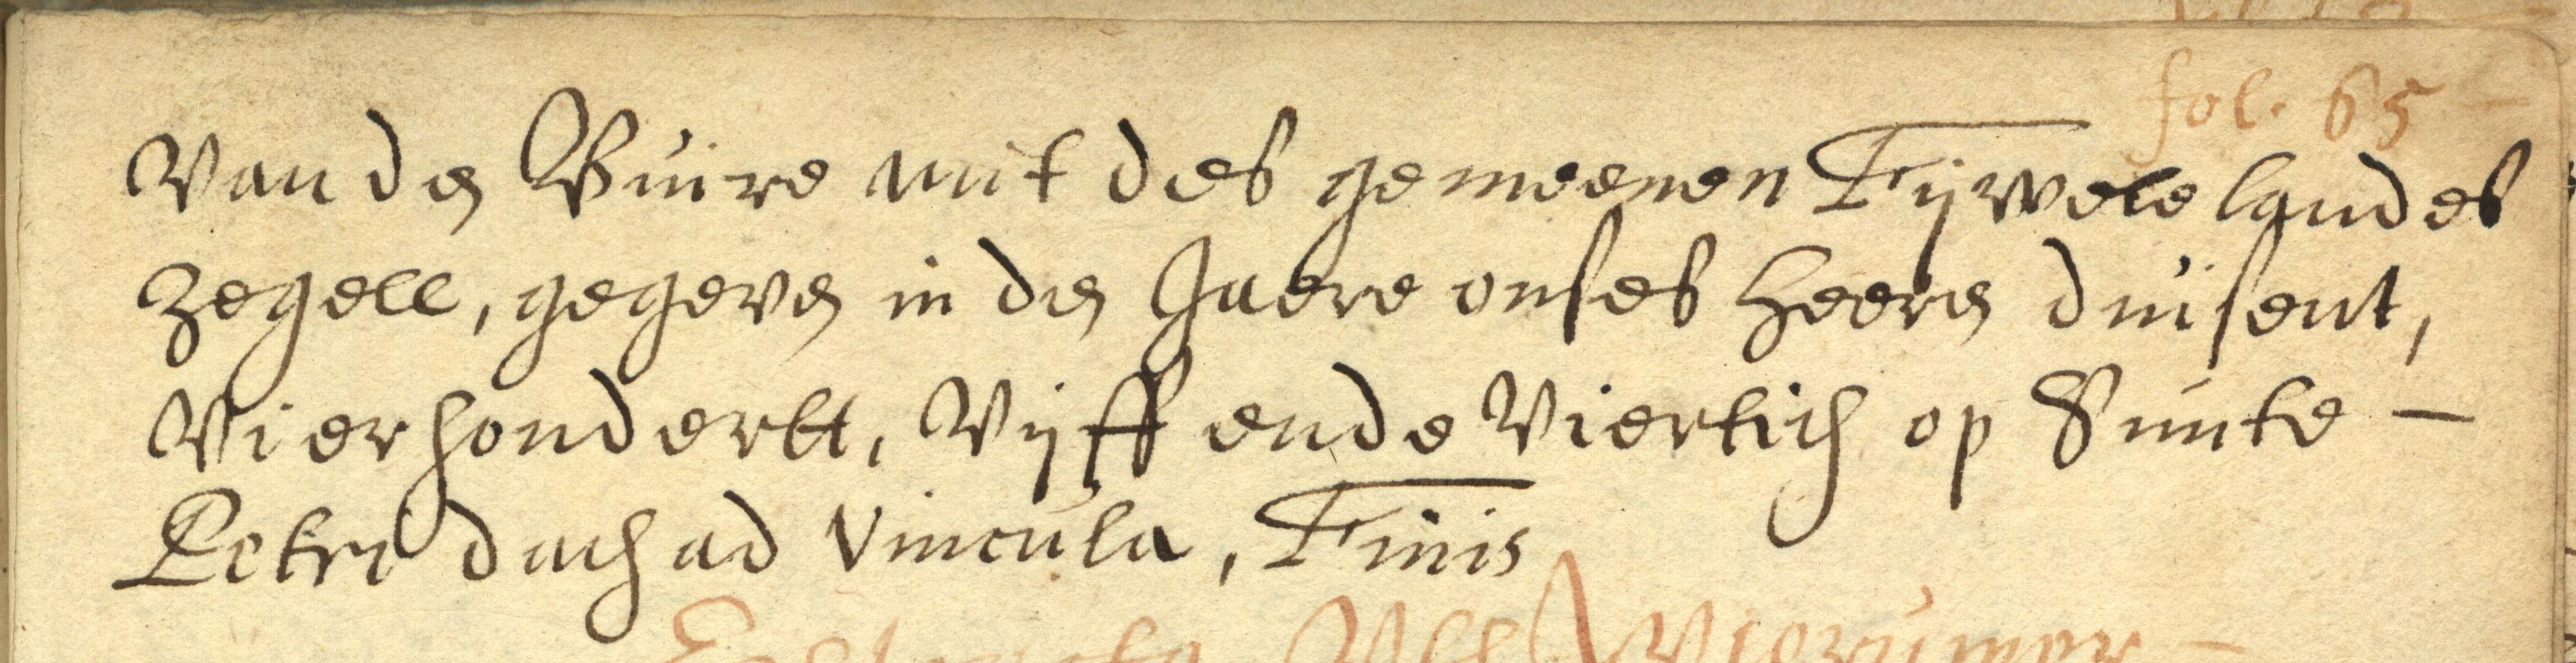 fol. 65
Van den Buire mit des gemeenen Fijvelelandes
Zegell, gegeven in den Jaere onses Heeren duisent,
Vierhondertt, Vijff ende Viertich op Sunte –
Petri dach ad Vincula, Finis